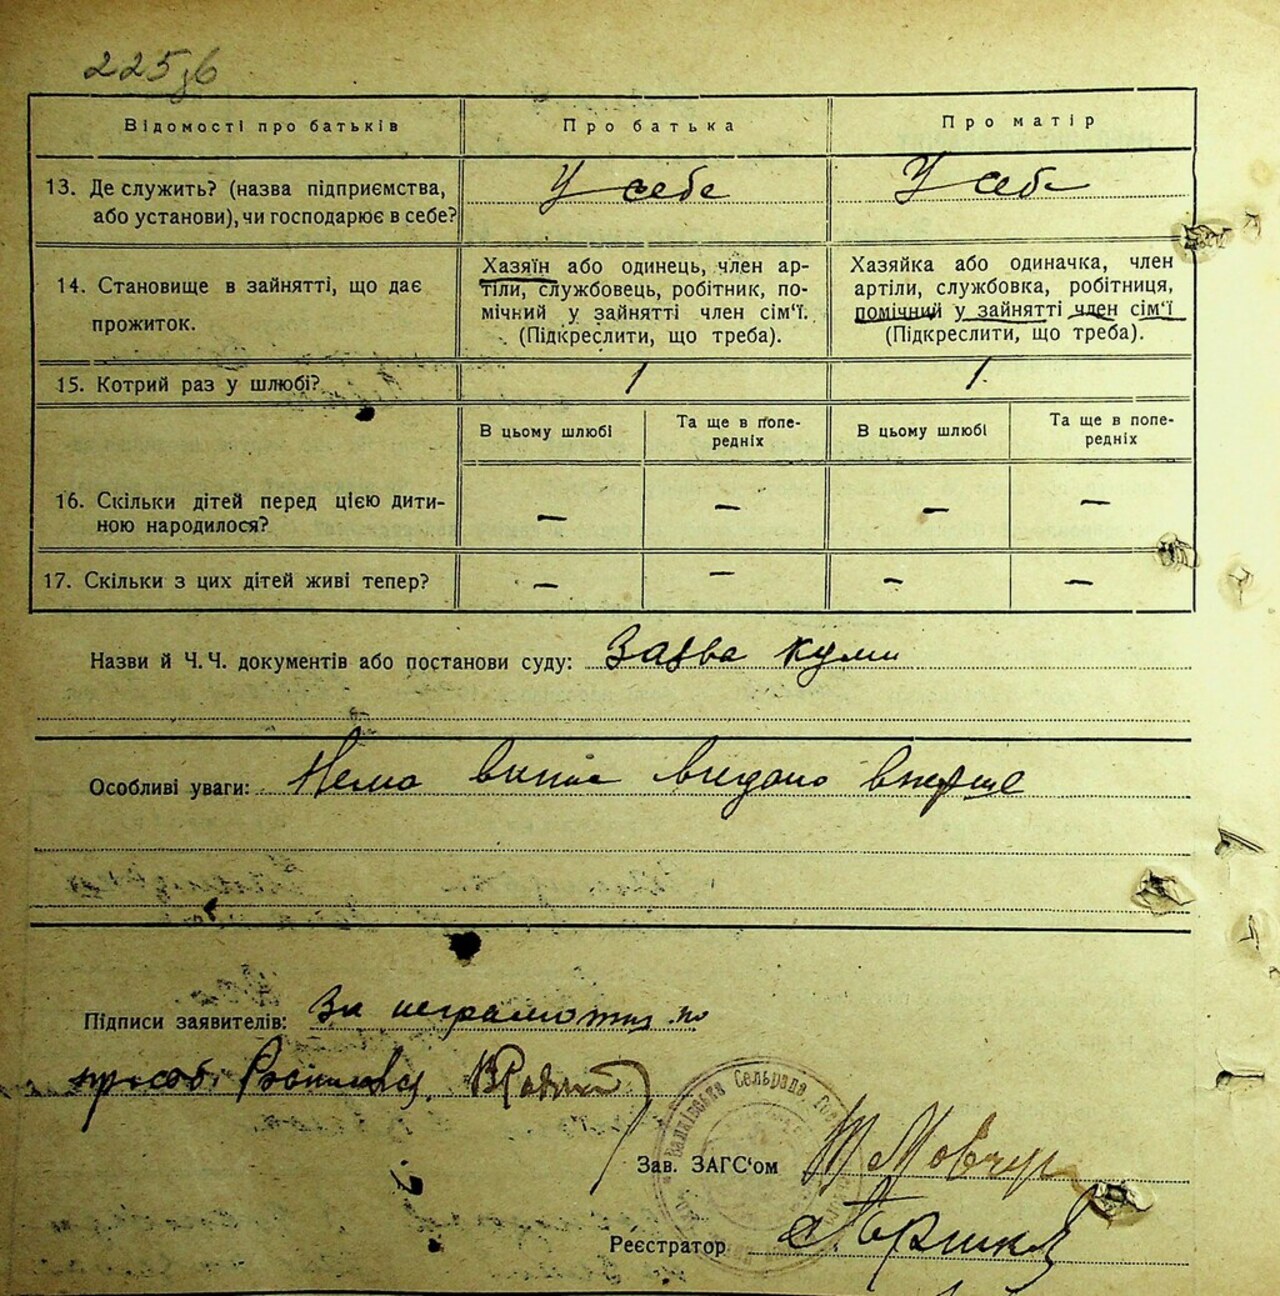 225зв
Відомості про батьків
Про батька
Про матір
13. Де служить? (назва підприємства,
або установи), чи господарює в себе?
У себе
У себе
14. Становище в зайнятті, що дає
прожиток.
Хазяїн або одинець, член ар-
тіли, службовець, робітник, по-
мічний у зайнятті член сім‘ї.
(Підкреслити, що треба).
Хазяйка або одиначка, член
артіли, службовка, робітниця,
помічний у зайнятті член сім‘ї
(Підкреслити, що треба).
15. Котрий раз у шлюбі?
1
1.
В цьому шлюбі
Та ще в попе-
редніх
В цьому шлюбі
Та ще в попе-
редніх
16. Скільки дітей перед цією дити-
ною народилося?
— — — —
17. Скільки з цих дітей живі тепер?
— — — —
Назви й Ч. Ч. документів або постанови суду: Заява куми
Особливі уваги: Нема видано вперше
Підписи заявителів: За неграмотну по
просбі
Сельрада
Зав. ЗАГС‘ом
Реєстратор